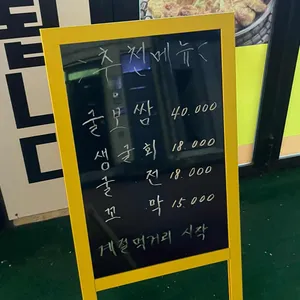 추천메뉴
굴보쌈 40.000
생굴회 18.000
굴전 18.000
꼬막 15.000
계절먹거리 시작